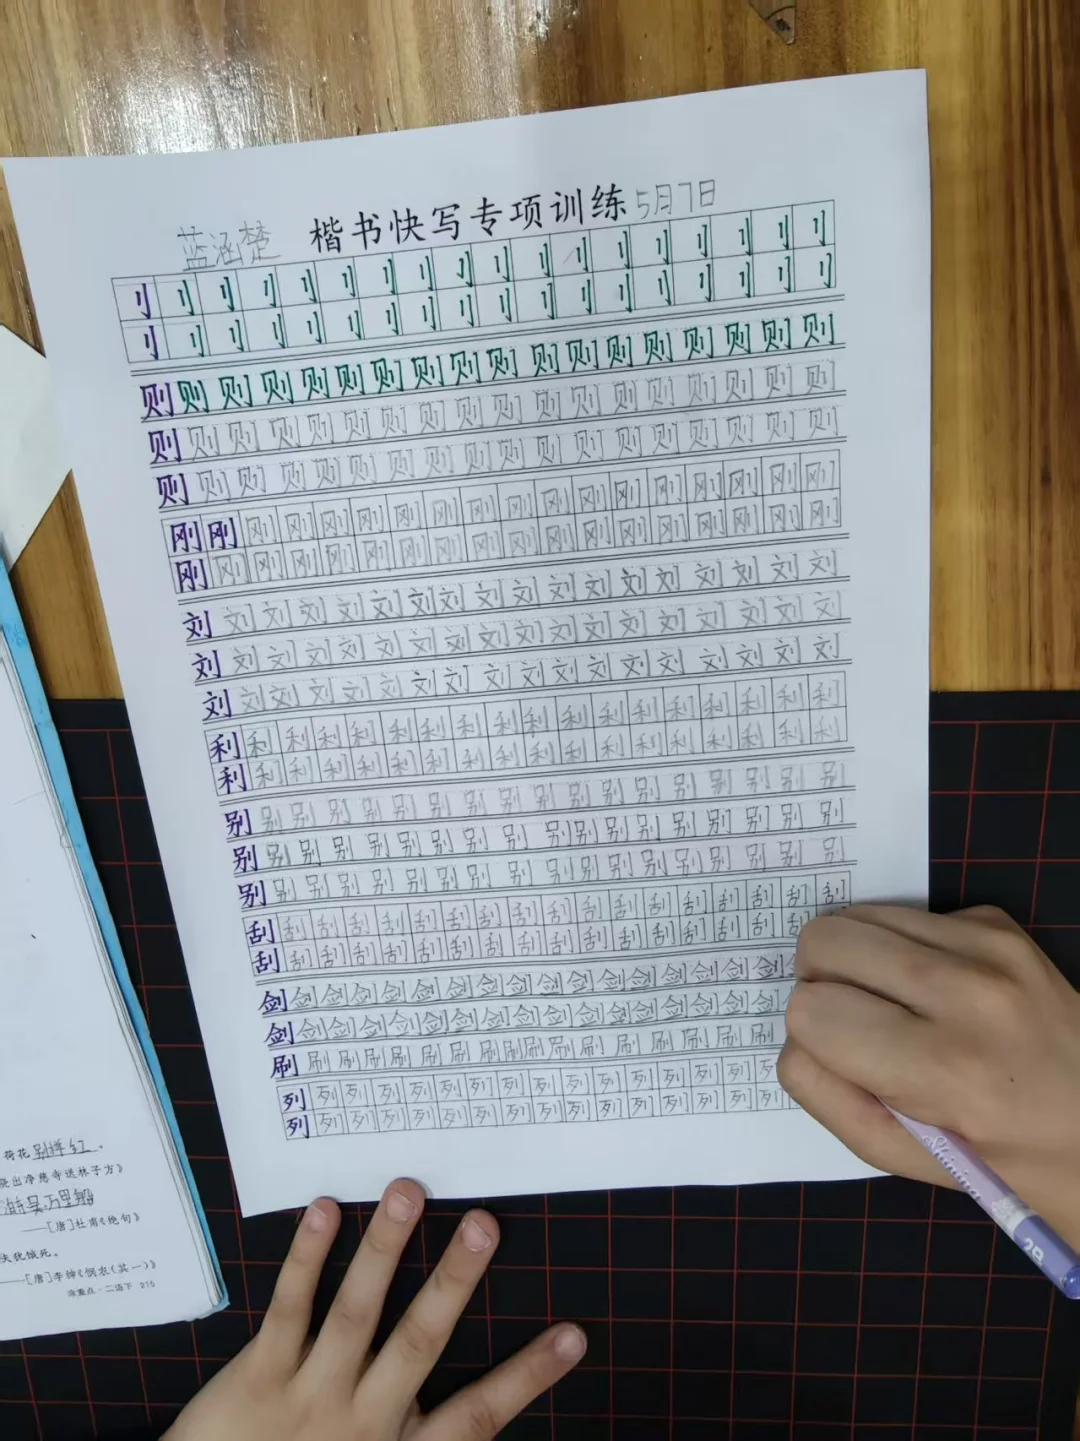 蓝涵楚 楷书快写专项训练 5月7日
刂 刂 刂 刂 刂 刂 刂 刂 刂 刂 刂 刂 刂 刂 刂 刂 刂 刂
刂 刂 刂 刂 刂 刂 刂 刂 刂 刂 刂 刂 刂 刂 刂 刂 刂 刂
则 则 则 则 则 则 则 则 则 则 则 则 则 则 则 则 则 则
则 则 则 则 则 则 则 则 则 则 则 则 则 则 则 则 则 则
则 则 则 则 则 则 则 则 则 则 则 则 则 则 则 则 则 则
刚 刚 刚 刚 刚 刚 刚 刚 刚 刚 刚 刚 刚 刚 刚 刚 刚 刚
刚 刚 刚 刚 刚 刚 刚 刚 刚 刚 刚 刚 刚 刚 刚 刚 刚 刚
刘 刘 刘 刘 刘 刘 刘 刘 刘 刘 刘 刘 刘 刘 刘 刘 刘 刘
刘 刘 刘 刘 刘 刘 刘 刘 刘 刘 刘 刘 刘 刘 刘 刘 刘 刘
刘 刘 刘 刘 刘 刘 刘 刘 刘 刘 刘 刘 刘 刘 刘 刘 刘 刘
利 利 利 利 利 利 利 利 利 利 利 利 利 利 利 利 利 利
利 利 利 利 利 利 利 利 利 利 利 利 利 利 利 利 利 利
别 别 别 别 别 别 别 别 别 别 别 别 别 别 别 别 别 别
别 别 别 别 别 别 别 别 别 别 别 别 别 别 别 别 别 别
别 别 别 别 别 别 别 别 别 别 别 别 别 别 别 别 别 别
刮 刮 刮 刮 刮 刮 刮 刮 刮 刮 刮 刮 刮 刮 刮 刮 刮 刮
刮 刮 刮 刮 刮 刮 刮 刮 刮 刮 刮 刮 刮 刮 刮 刮 刮
剑 剑 剑 剑 剑 剑 剑 剑 剑 剑 剑 剑 剑 剑 剑 剑 剑
剑 剑 剑 剑 剑 剑 剑 剑 剑 剑 剑 剑 剑 剑 剑 剑 剑
刷 刷 刷 刷 刷 刷 刷 刷 刷 刷 刷 刷 刷 刷 刷 刷 刷
列 列 列 列 列 列 列 列 列 列 列 列 列 列 列 列
列 列 列 列 列 列 列 列 列 列 列 列 列 列 列 列
荷花别样红。
晓出净慈寺送林子方》
万里船
——[唐]杜甫《绝句》
夫犹饿死。
——[唐]李绅《悯农(其一)》
二语下 215